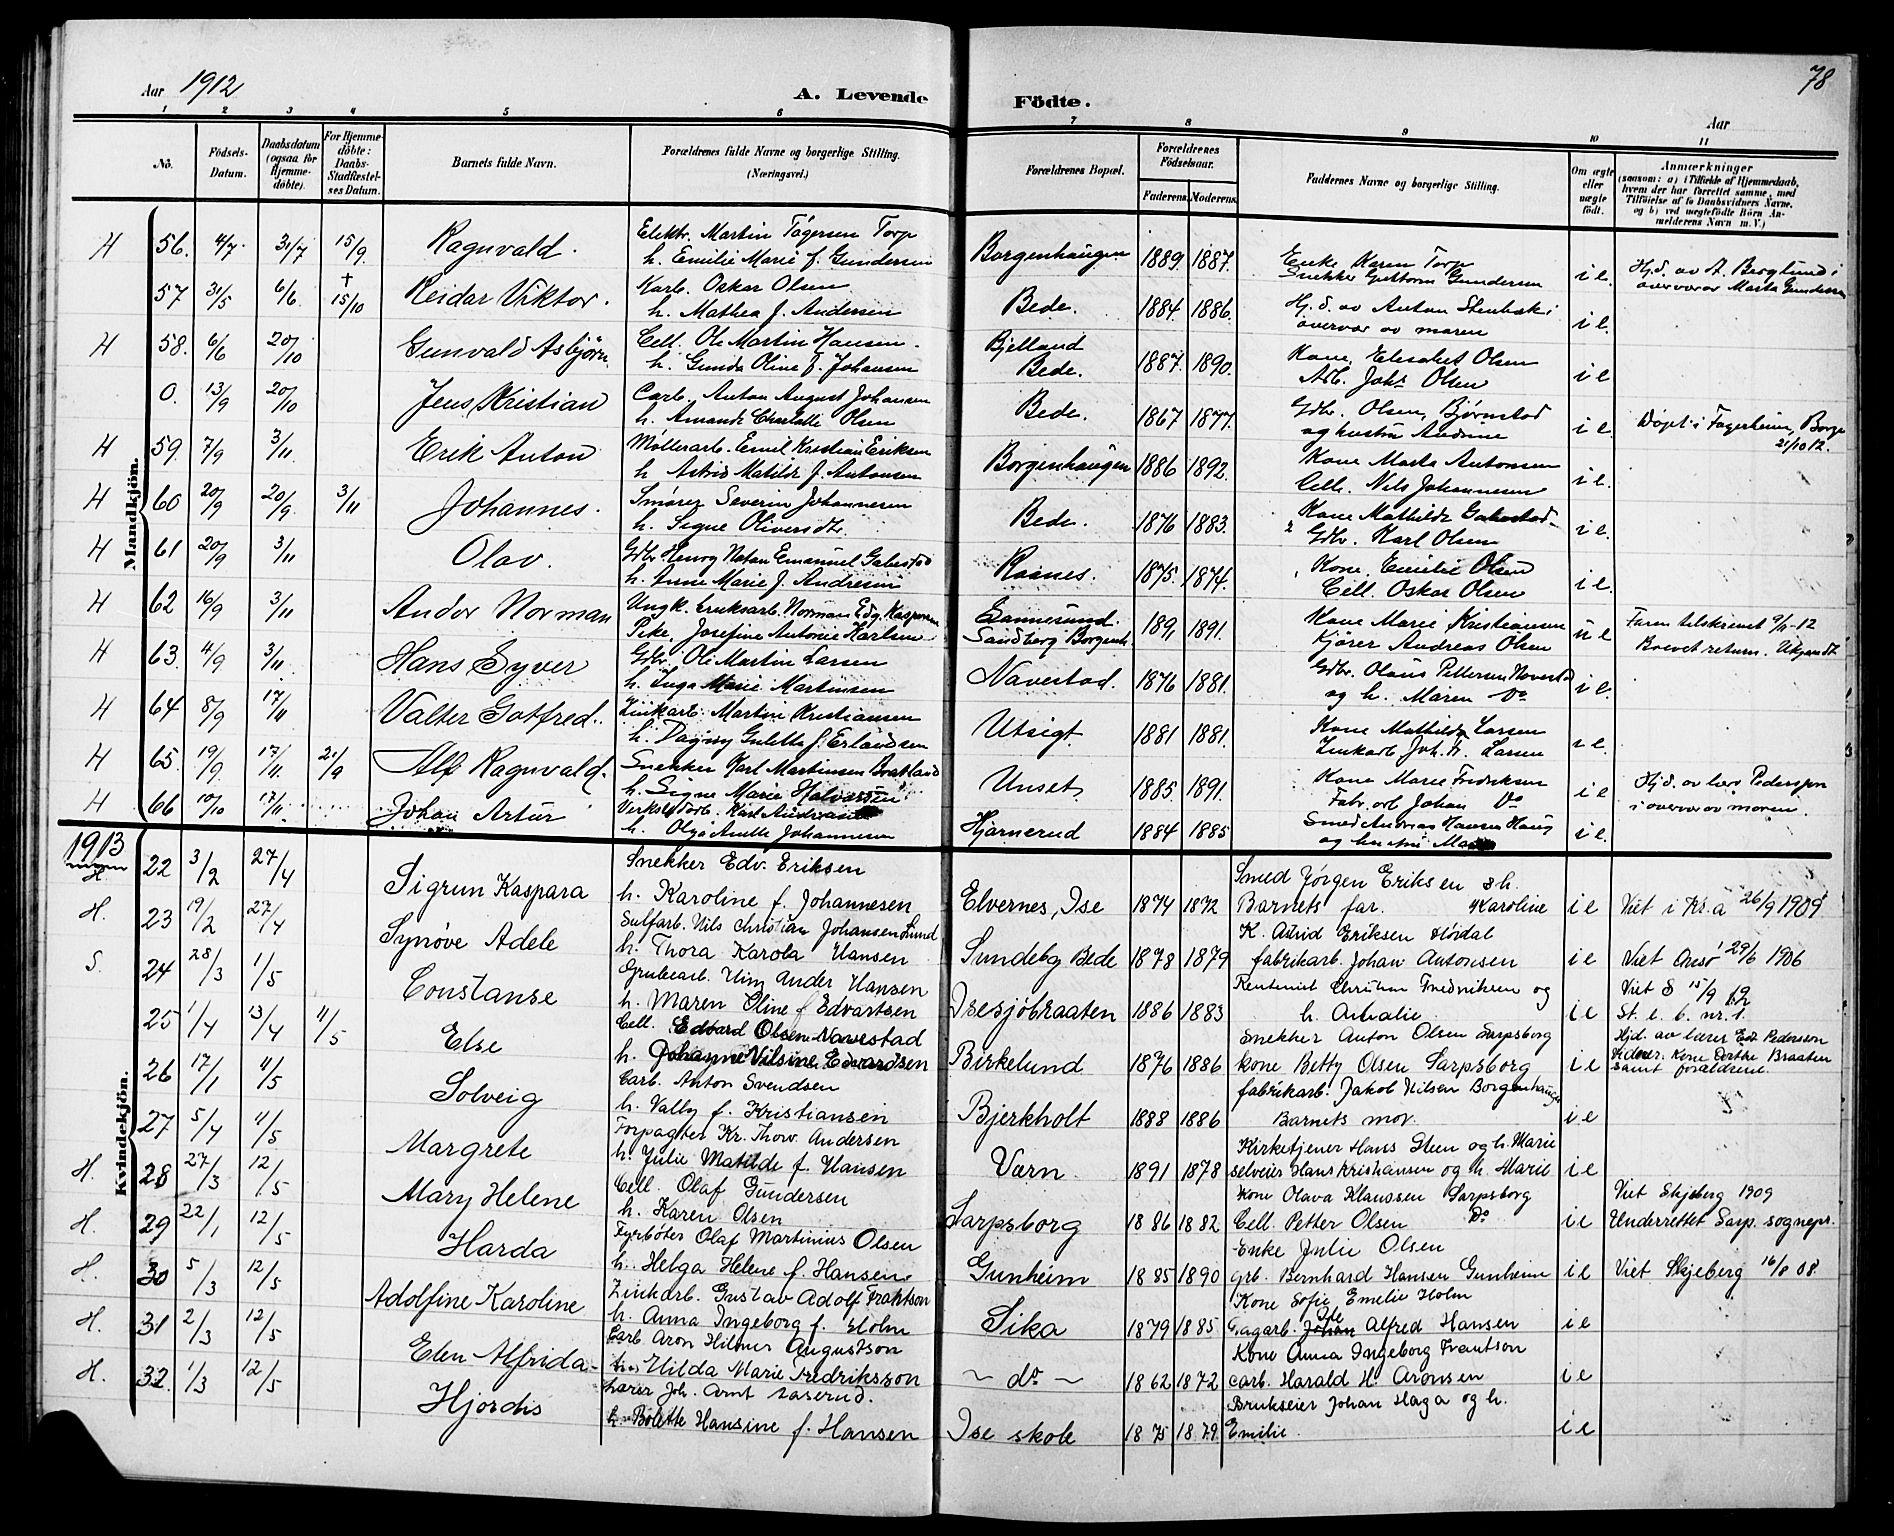 Aar 1912
A. Levende Födte.
78
Aar
1 2 3 4 5 6 7 8 9 10 11
No. Födsels-Datum. Daabsdatum (ogsaa for Hjemme-döbte). For Hjemme-döbte: Daabs-Stadfæstel-ses Datum. Barnets fulde Navn. Forældrenes fulde Navne og borgerlige Stilling. (Næringsvei.) Forældrenes Bopæl. Forældrenes Födselsaar. Faderens. Moderens. Faddernes Navne og borgerlige Stilling. Om ægte eller uægte födt. Anmærkninger (saasom: a) i Tilfælde af Hjemmedaab, hvem der har forrettet samme, med Tilföielse af to Daabsvidners Navne. og b) ved uægtefödte Börn Anmelderens Navn m. V.)
Mandkjön.
H 56. 4/7. 31/7 15/9 Ragnvald. Elektr. Martin Tögersen Torp
h. Emilie Marie f. Gundersen Borgenhaugen 1889. 1887. Enke Karen Torp
Snekker Guttorm Gundersen i e. Hj.d. av A. Berglund i
overvær av Marta Gundersen
57 31/5 6/6 † 15/10 Reidar Viktor. Karb. Oskar Olsen
h. Mathea f. Andersen Bede. 1884. 1886. Hj.d. av Anton Stenbæk i
overvær av moren i e.
H 58. 6/6 20/10 Gunvald Asbjörn. Cell. Ole Martin Hansen.
h. Gunda Oline f. Johansen Bjelland
Bede. 1887. 1890. Kone Elisabet Olsen
Arb. Johs Olsen i e
0. 13/9 20/10 Jens Kristian Carb. Anton August Johansen
h. Amanda Charlotte Olsen Bede. 1867 1877. Gdbr. Olsen, Bjørnstad
og hustru Andrine i e. Døpt i Fagerheim, Borge
21/10 12.
H 59. 7/9 3/11 Erik Anton Møllerarb. Emil Kristian Eriksen
h. Astrid Matilde f. Antonsen Borgenhaugen 1886 1892. Kone Marta Antonsen
Cell. Nils Johannesen i e.
H 60 20/9 20/9 3/11 Johannes. Smører Severin Johannesen
h. Signe Oliversdt. Bede. 1876 1883. Kone Mathilde Gabestad
Gdbr. Karl Olsen i e.
H 61 20/9 3/11 Olav. Gdbr Henry Natan Emanuel Gabestad
h. Anne Marie f. Andresen Raanes. 1875. 1874. Kone Emilie Olsen
Cell. Oskar Olsen i e.
H 62 16/9 3/11 Andor Norman Ungk. bruksarb. Norman Edg. Kaspersen
Pike, Josefine Antonie Karlsen Sannesund.
Sandberg Borgenh. 1891 1891. Kone Marie Kristiansen
Kjører Andreas Olsen u e Faren tilskrevet 9/11-12
Brevet return. Ukjendt
H 63. 4/9 3/11 Hans Syver Gdbr. Ole Martin Larsen
h. Inga Marie Martinsen Navestad. 1876 1881. Gdbr. Olaus Pettersen Navestad
og h. Maren Do i e.
H 64 8/9 17/11 Valter Gotfred. Zinkarb. Martin Kristiansen
h. Dagny Gulette f. Erlandsen Utsigt. 1881 1881. Kone Mathilde Larsen
Zinkarb Joh. A. Larsen i e.
H 65. 19/9. 17/11. 21/9 Alf Ragnvald. Snekker Karl Martinsen Bratland
h. Signe Marie Halvorsen Unset. 1885. 1891. Kone Marie Fredriksen
Fabr. arb Johan Do i e Hj.d. av lærer Pederssen
i overvær av moren.
H 66 10/10 17/11 Johan Artur Verksted arb. Karl
h. Olga Anette Johannesen Hjørnerud 1884 1885 Smed Andreas Hansen Haug
og hustru i e.
1913
Kvindekjön.
H. 22 3/2 27/4 Sigrun Kaspara Snekker Edv. Eriksen
h. Karoline f. Johannesen Elvernes, Ise 1874 1872 Smed Jörgen Eriksen s h.
Barnets far. Karoline i e Viet i Kr.a 26/9 1909
H. 23 19/2 27/4 Synöve Adele Sulfarb. Nils Christian Johansen Lund
h. Thora Karola Hansen Sundeby Bede 1878 1879 K. Astrid Eriksen Hördal
fabrikarb. Johan Antonsen i e Viet Onsö 29/6 1906
S. 24 28/3 1/5 Constanse Grubearb. Uim Ander Hansen
h. Maren Oline f Edvartsen Isesjöbraaten 1886 1883 Rentenist Christian Fredriksen og
h. Amalie i e Viet S 15/9 12
St. l. b. nr. 1.
25 1/4 13/4 11/5 Else Cell. Edvard Olsen Navestad
h. Johanne Nilsine Edvardsen Birkelund 1876 1886 Snekker Anton Olsen Sarpsborg
kone Betty Olsen Sarpsborg i e Hjd. av lærer Edt Pedersson
Vidner: Kone Dorthe Braaten
samt forældrene.
26 17/1 11/5 Solveig Carb. Anton Svendsen
h. Valby f. Kristiansen Bjerkholt 1888 1886 fabrikarb. Jakob Nilsen Borgenhaugen
Barnets mor. i e
27 5/4 11/5 Margrete Forpagter Kr. Thorv. Andersen
h. Julie Matilde f. Hansen Værn. 1891 1878 Kirketjener Hans Steen og h. Marie
selveier Hans Kristiansen og h. Marie i e
H. 28 27/3 12/5 Mary Helene Cell. Olaf Gundersen
h. Karen Olsen Sarpsborg 1886 1882 Kone Olava Klaussen Sarpsborg
Cell. Petter Olsen Do i e Viet Skjeberg 1909
Underrettet Sarp. sognepr.
H. 29 22/1 12/5 Harda Fyrböter Olaf Martinius Olsen
h. Helga Helene f. Hansen Gunheim 1885 1890 Enke Julie Olsen
grb. Bernhard Hansen Gunheim i e Viet Skjeberg 16/8 08.
H. 30 5/3 12/5 Adolfine Karoline Zinkarb. Gustav Adolf Frantson
h. Anna Ingeborg f. Holm Sika 1879 1885 Kone Sofie Emelie Holm
Dagarb. Johan Ole Alfred Hansen i e
H. 31 2/3 12/5 Elen Alfrida Carb Aron Hilmer Augustson
h. Hilda Marie Fredriksson ~ do ~ 1862 1872 Kone Anna Ingeborg Frantson
carb. Harald H. Aronsen i e
H. 32. 1/3 12/5 Hjördis Lærer Joh. Arnt Saserud.
h. Bolette Hansine f. Hansen Ise skole 1875 1879. Brukseier Johan Haga og h.
Emilie. i e